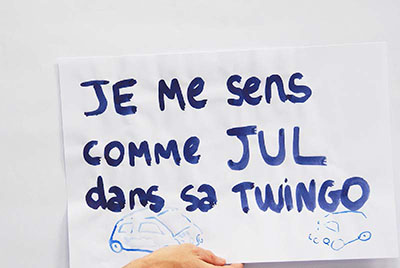 JE Me sens
comme JUL
dans sa TWINGO